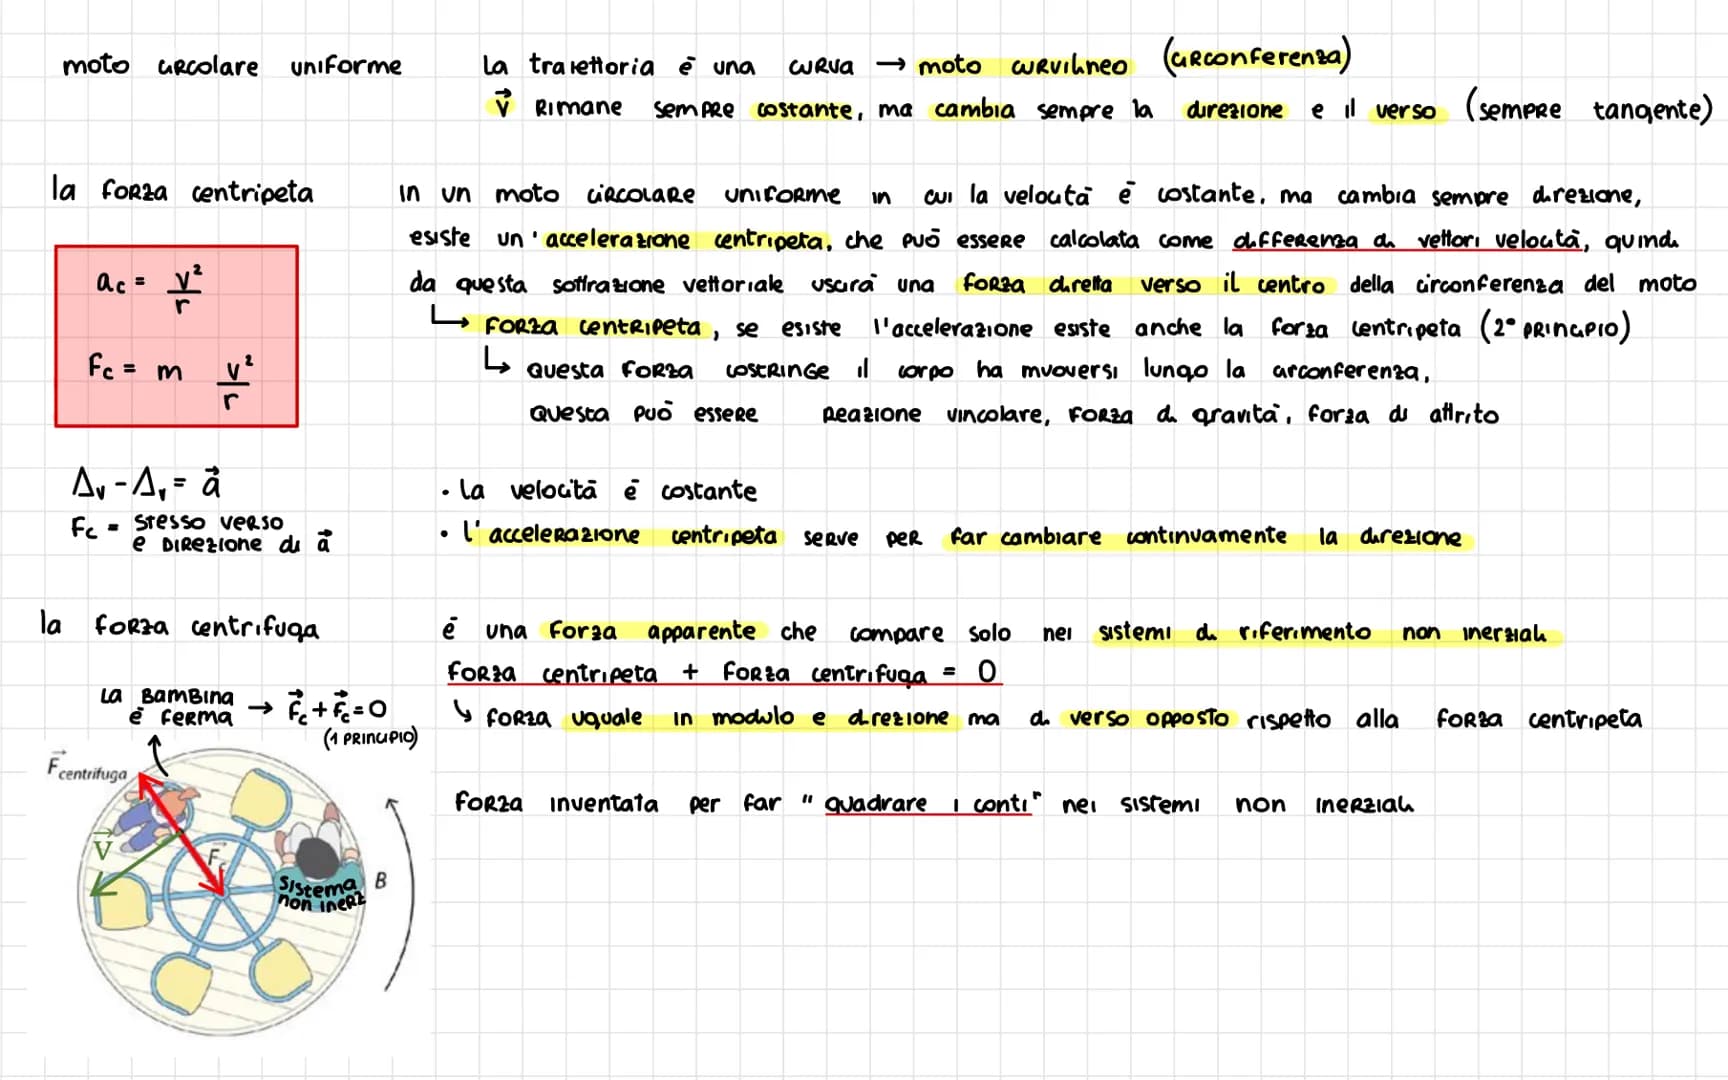 moto circolare uniforme
La traiettoria è una curva → moto curvilineo (circonferenza)
v Rimane sempre costante, ma cambia sempre la direzione e il verso (sempre tangente)
la forza centripeta
in un moto circolare uniforme in cui la velocità è costante, ma cambia sempre direzione,
esiste un' accelerazione centripeta, che può essere calcolata come differenza di vettori velocità, quindi
da questa sottrazione vettoriale uscirà una forza diretta verso il centro della circonferenza del moto
↳ forza centripeta, se esiste l'accelerazione esiste anche la forza centripeta (2° principio)
↳ questa forza costringe il corpo ha muoversi lungo la circonferenza,
questa può essere reazione vincolare, forza di gravità, forza di attrito
ac = v²/r
Fc = m v²/r
Δv - Δv = a
Fc = stesso verso
e direzione di a
· La velocità è costante
· l'accelerazione centripeta serve per far cambiare continuamente la direzione
la forza centrifuga
è una forza apparente che compare solo nei sistemi di riferimento non inerziali
forza centripeta + forza centrifuga = 0
↳ forza uguale in modulo e direzione ma di verso opposto rispetto alla forza centripeta
forza inventata per far "quadrare i conti" nei sistemi non inerziali
La bambina
è ferma → Fc + Fc = 0
(1 principio)
F centrifuga
V
Fc
Sistema
non inerz
B